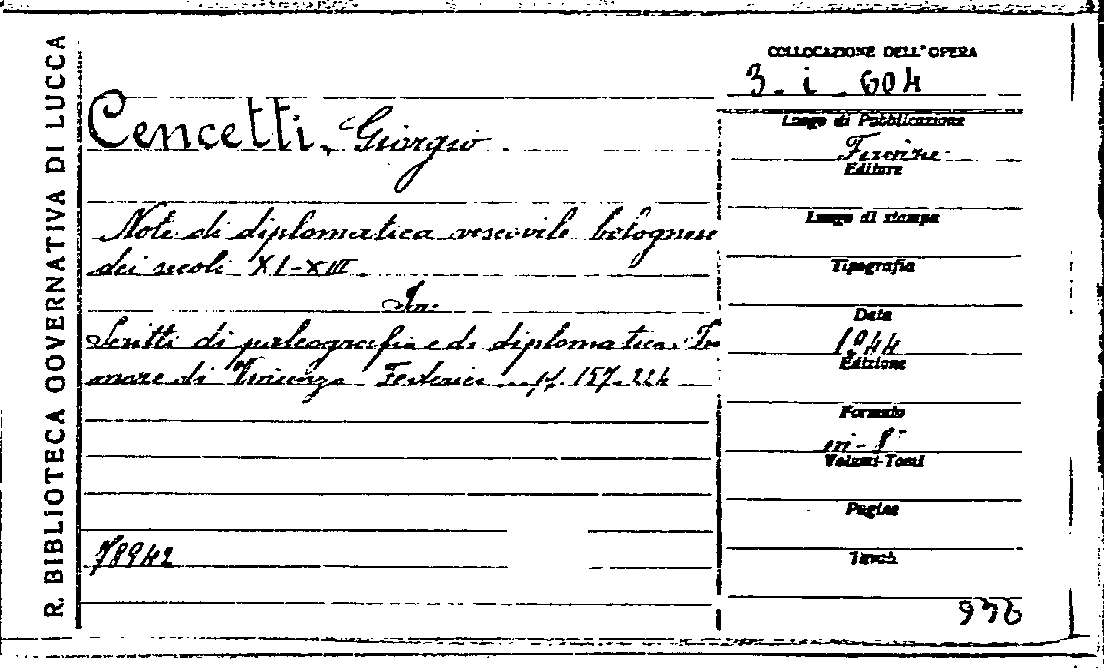 R. BIBLIOTECA GOVERNATIVA DI LUCCA
Cencetti, Giorgio.
Note di diplomatica vescovile bolognese
dei secoli XI-XIII.
In:
Scritti di paleografia e di diplomatica. In
onore di Vincenzo Federici pp. 157-224
78942
COLLOCAZIONE DELL'OPERA
3. i. 604
Luogo di Pubblicazione
Firenze
Editore
Luogo di stampa
Tipografia
Data
1944
Edizione
Formato
in-8°
Volumi-Tomi
Pagine
Tavole